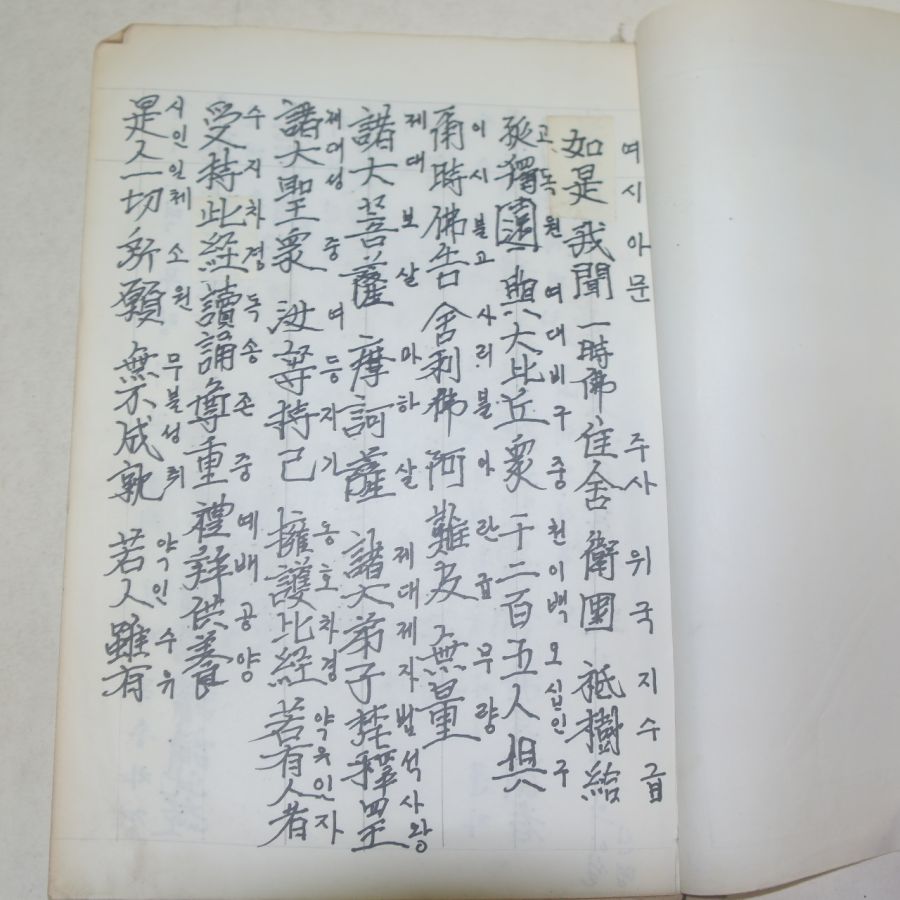 여시아문 주사위국 지수급
如是我聞一時佛住舍衛国祗樹給
고독원 여대비구중 천이백오십인구
孤獨園與大比丘衆千二百五人俱
이시불고사리불아란급무량
甬時佛告舍利佛阿難及無量
제대보살마하살 제대제자범석사왕
諸大菩薩摩訶薩諸大弟子梵釋四王
제대성중여등자기 옹호차경 약유인자
諸大聖衆汝等持己擁護此経若有人者
수지차경독송존중예배공양
受持此経讀誦尊重禮拜供養
시인일체소원무불성취 약인수유
是人一切所願無不成就若人雖有